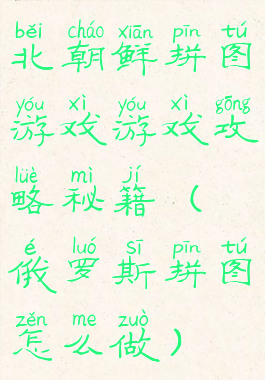 běi cháo xiān pīn tú
北朝鲜拼图
yóu xì yóu xì gōng
游戏游戏攻
lüè mì jí
略秘籍（
é luó sī pīn tú
俄罗斯拼图
zěn me zuò
怎么做）